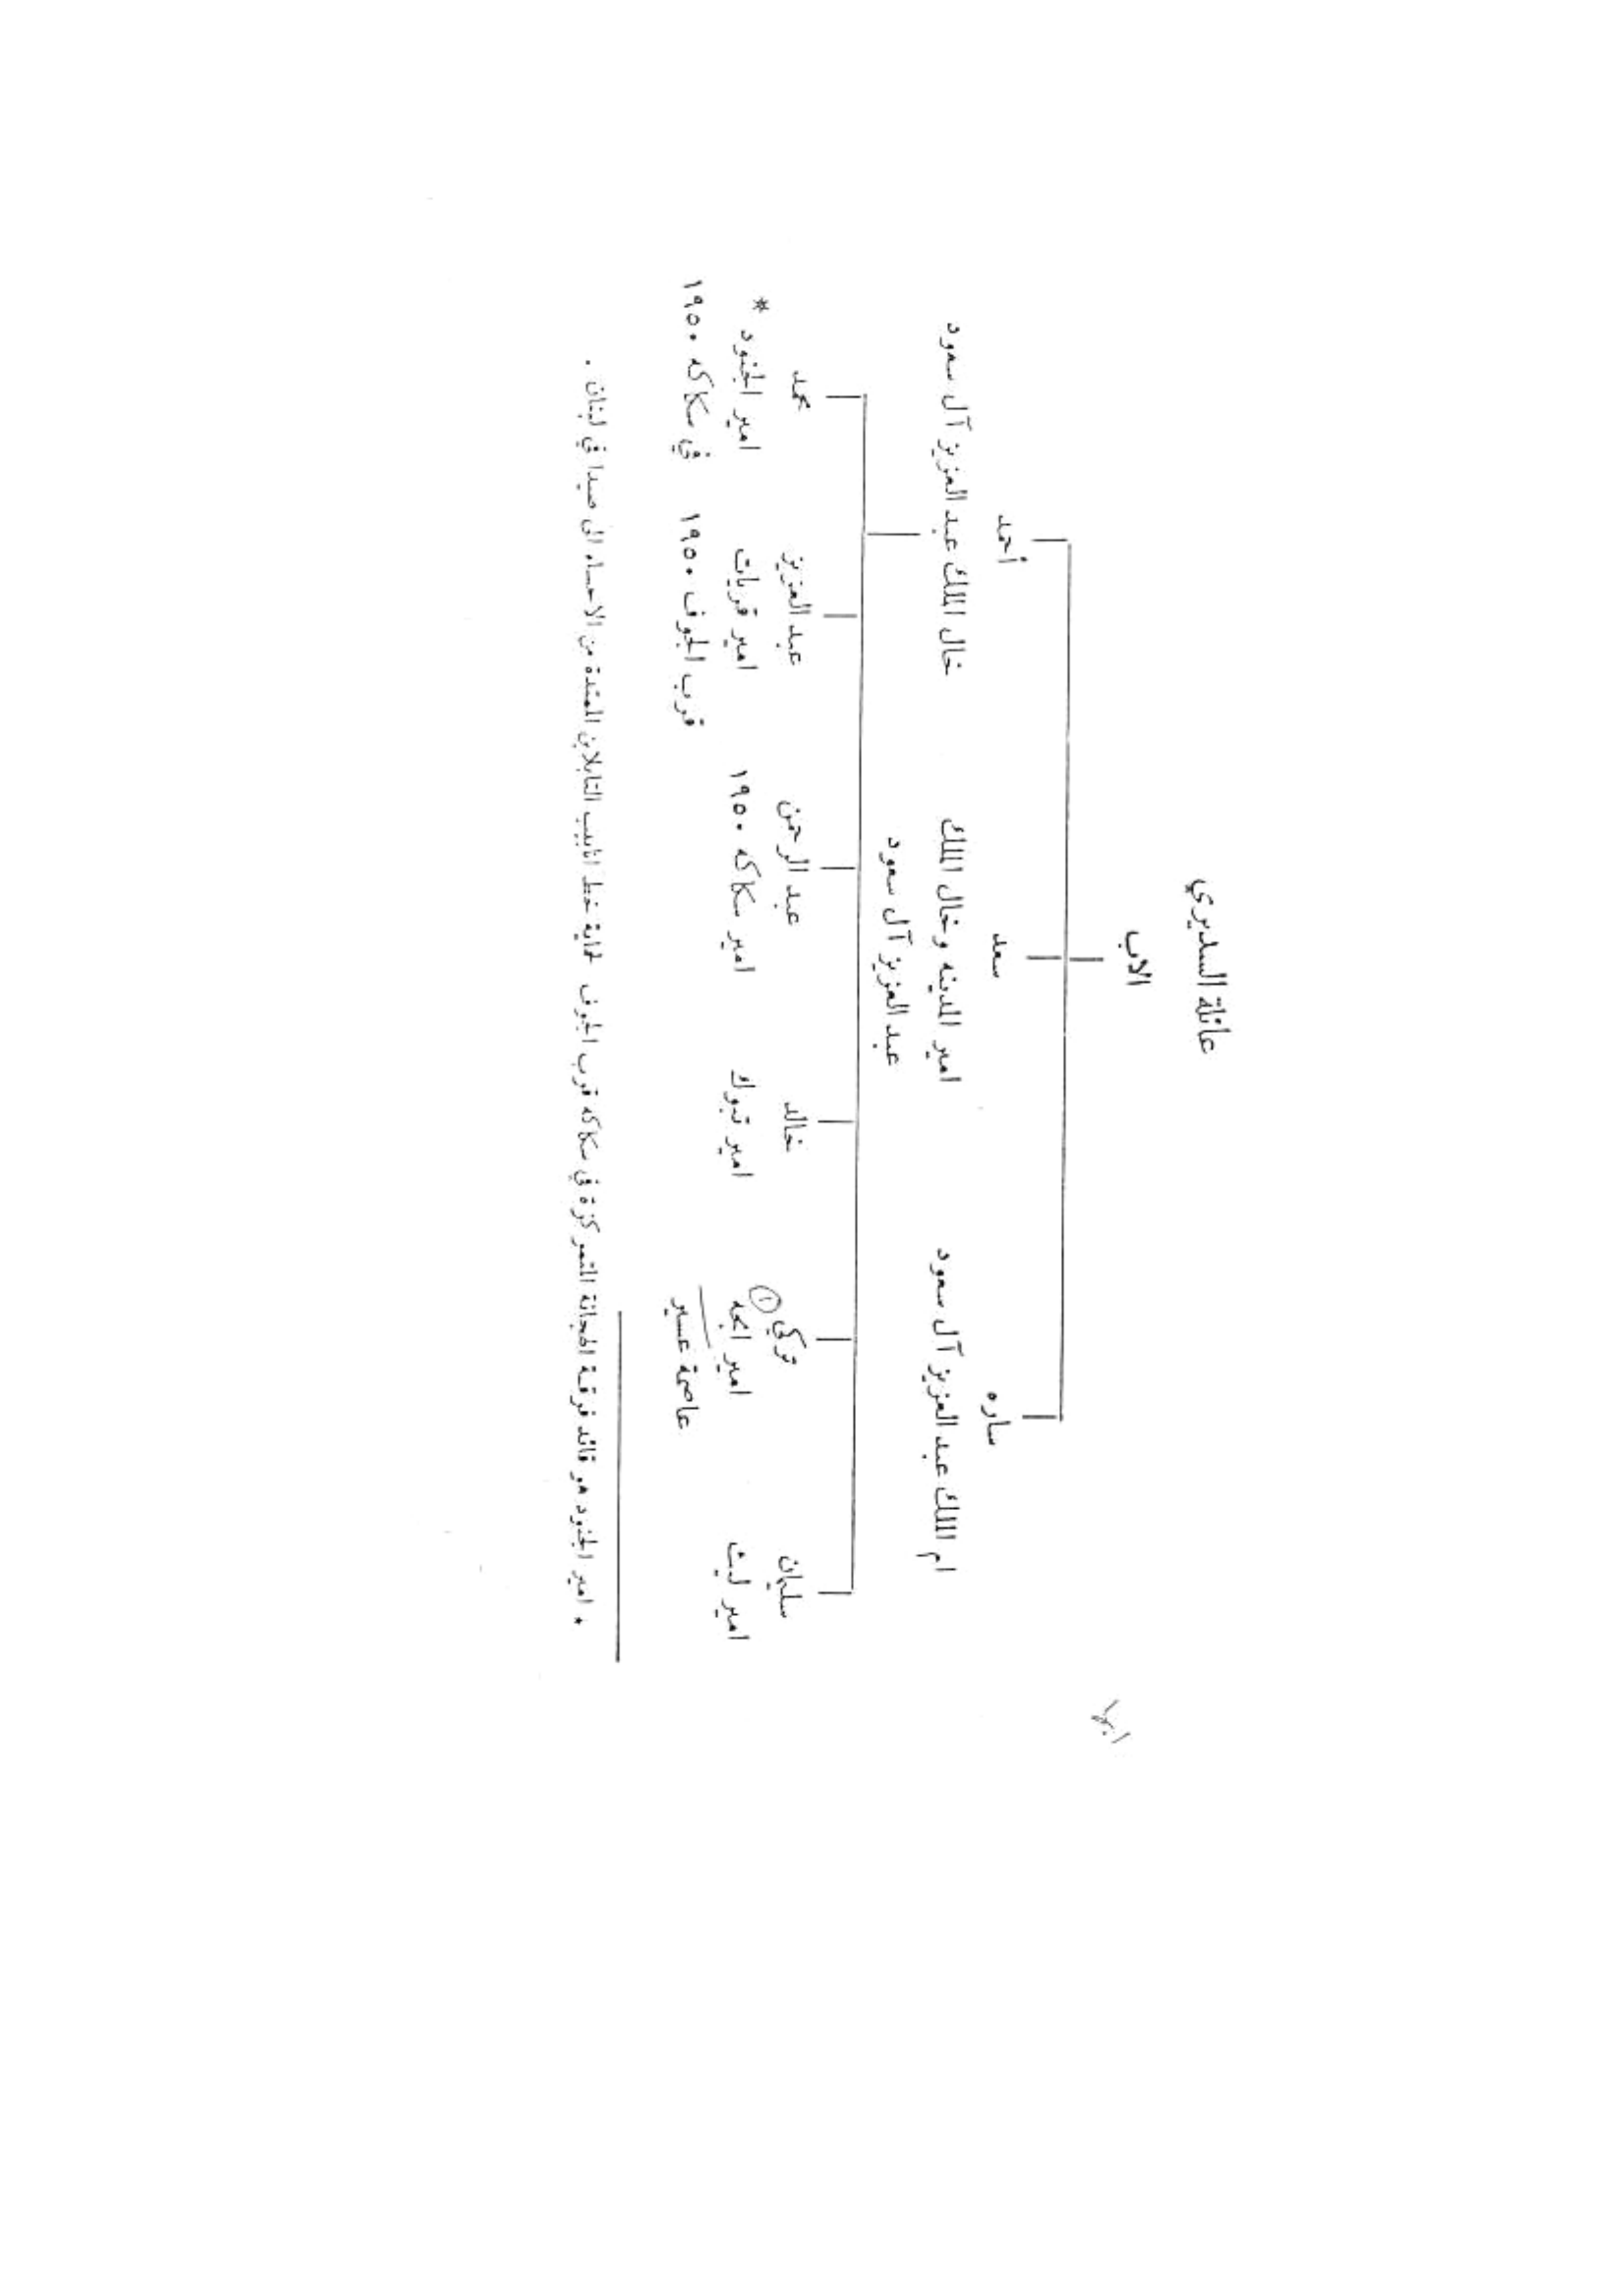 عائلة السديري
الاب
ساره
سعد
أحمد
ام الملك عبد العزيز آل سعود
امير المدينه وخال الملك
عبد العزيز آل سعود
خال الملك عبد العزيز آل سعود
سليمان
امير ليث
تركي ①
امير ابجه
عاصمة عسير
خالد
امير تبوك
عبد الرحمن
امير سكاكه ١٩٥٠
عبد العزيز
امير قريات
قرب الجوف ١٩٥٠
محمد
امير الجنود *
في سكاكه ١٩٥٠
* امير الجنود هو قائد فرقة الهجانة المتمركزة في سكاكه قرب الجوف لحماية خط انابيب التابلاين الممتدة من الاحساء الى صيدا في لبنان .
ابها